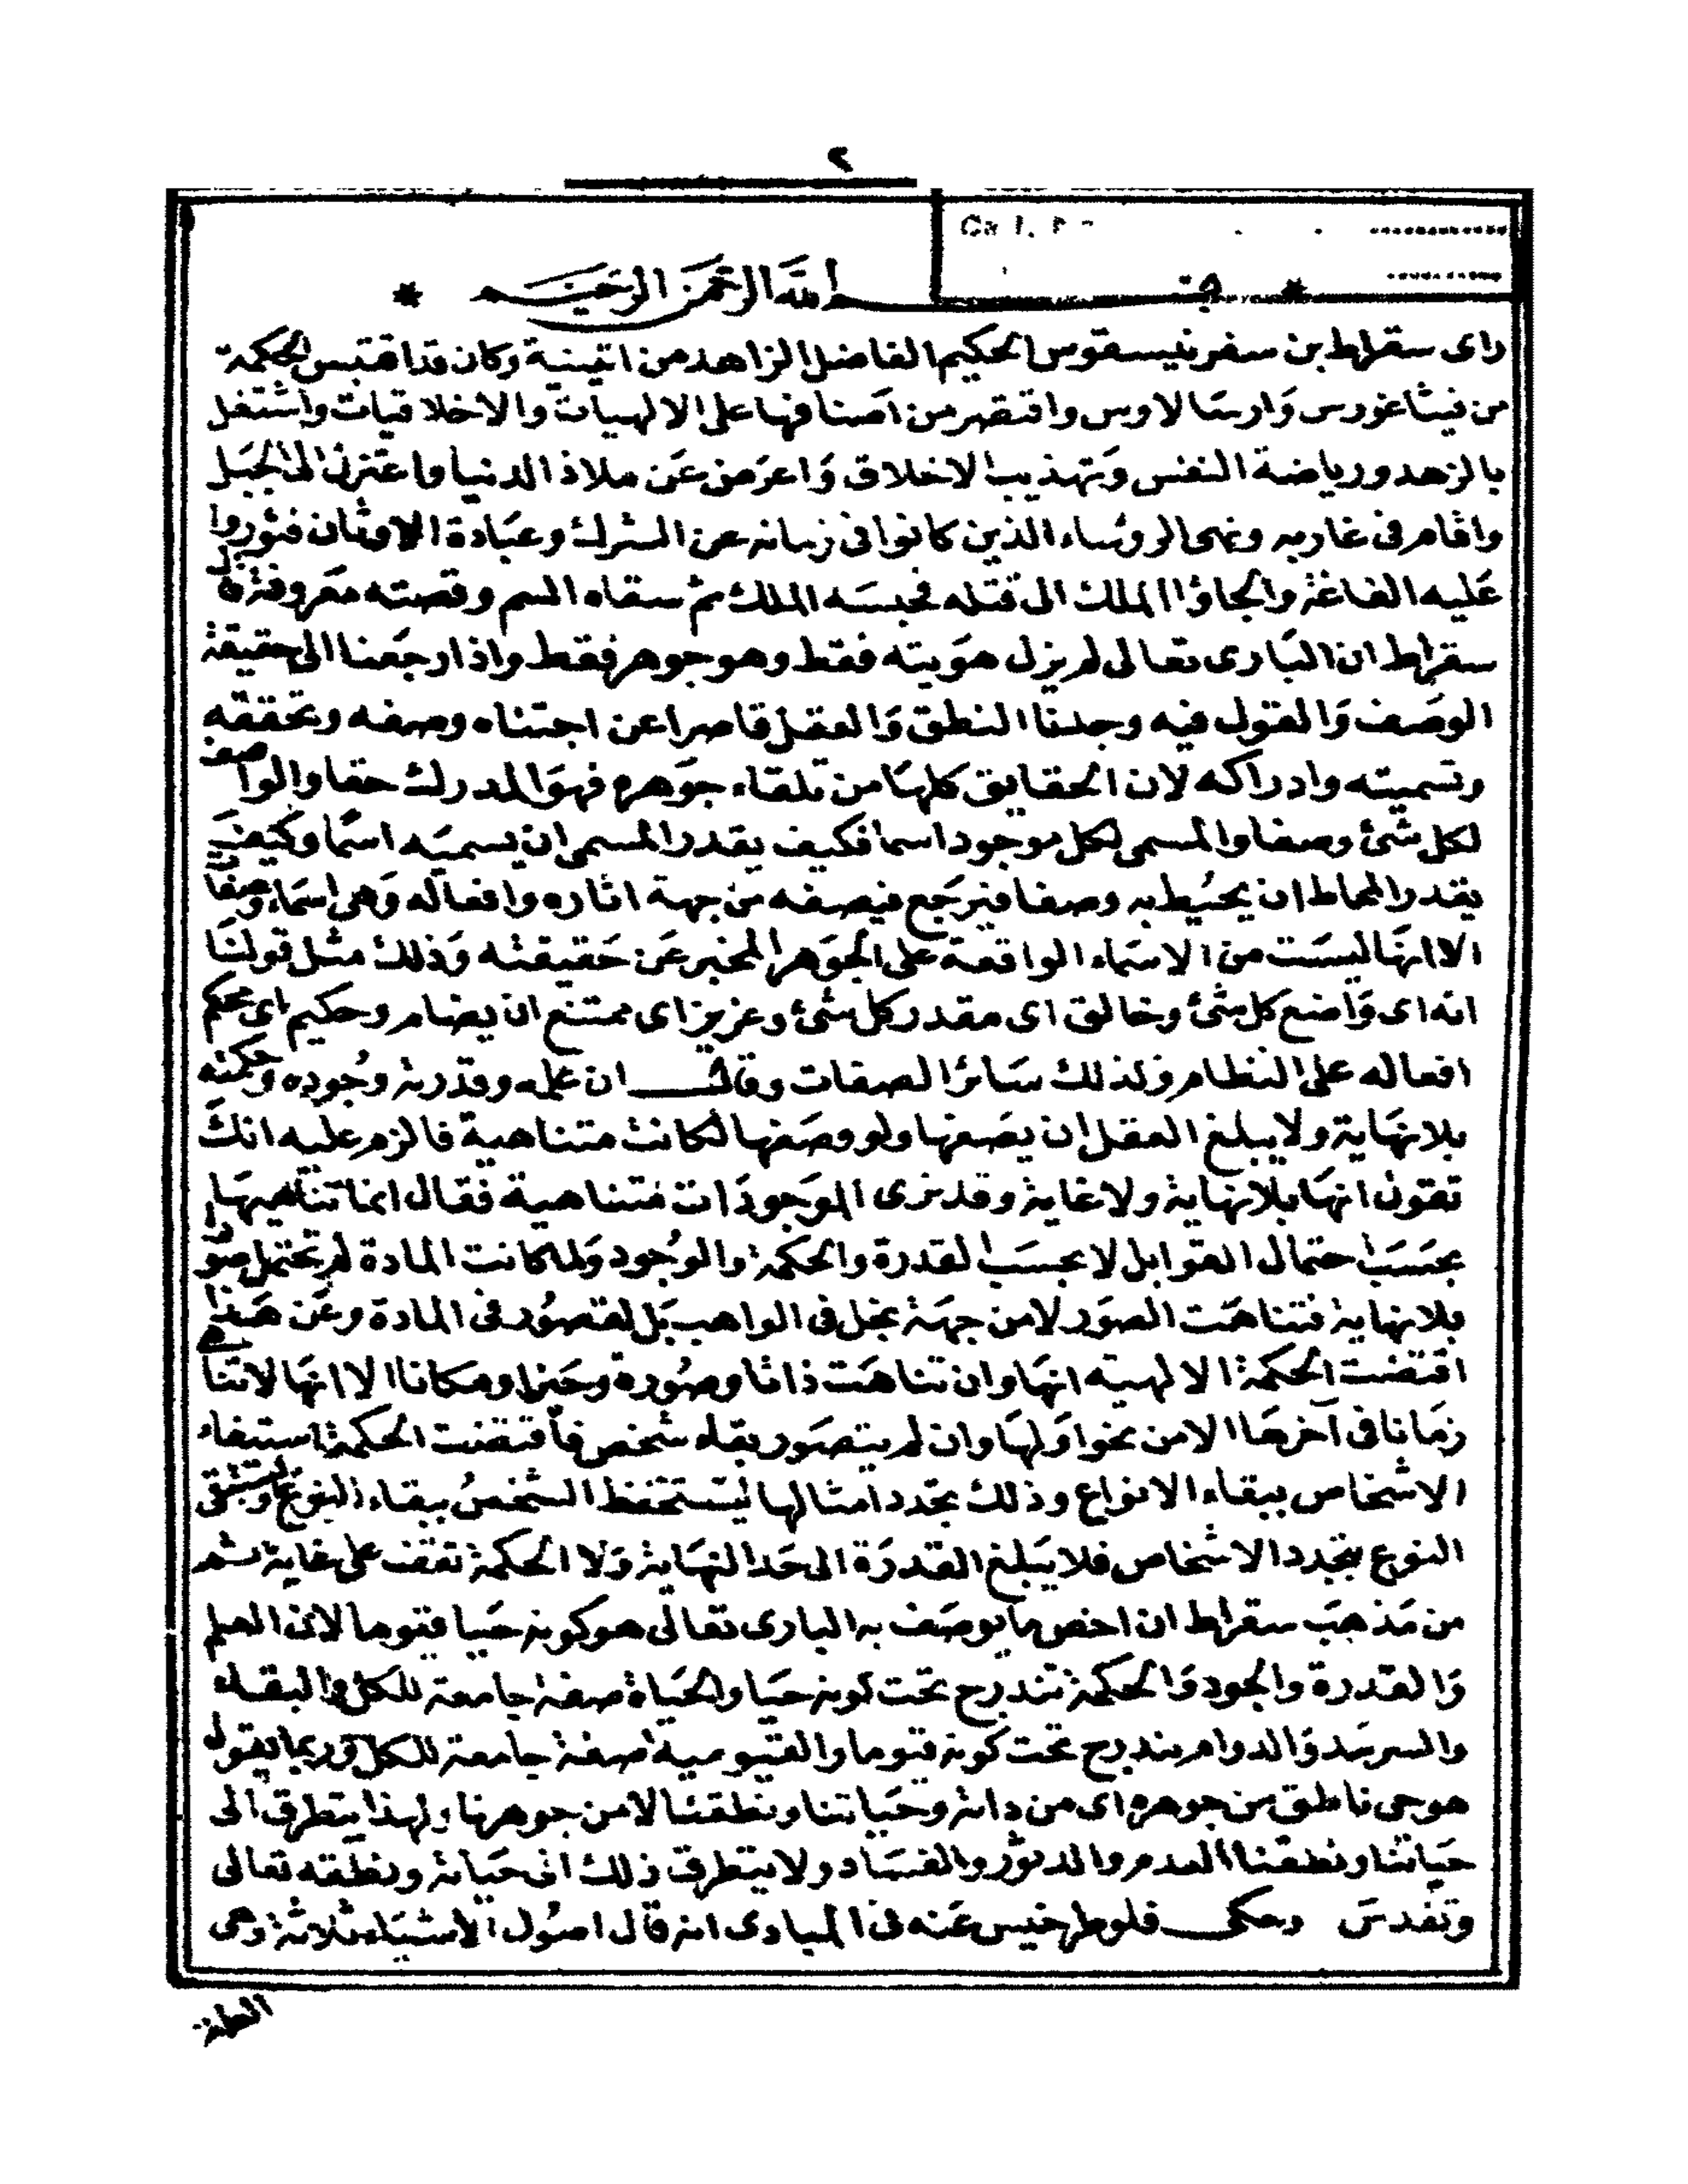 ٢
الله الرحمن الرحيم
رای سقراط بن سفرنیسقوس الحکیم الفاضل الزاهد من اتینیة وکان قد اقتبس الحکمة
من فیثاغورس وارسالاوس واقتصر من اصنافها علی الالهیات والاخلاقیات واشتغل
بالزهد وریاضة النفس وتهذیب الاخلاق واعرض عن ملاذ الدنیا واعتزل الی الجبل
واقام فی غاربه ونهی الروساء الذین کانوا فی زمانه عن الشرك وعبادة الاوثان فثوروا
علیه الغاغة والجاؤا الملك الی قتله فحبسه الملك ثم سقاه السم وقصته معروفة قال
سقراط ان الباری تعالی لم یزل هویته فقط وهو جوهر فقط واذا رجعنا الی حقیقة
الوصف والقول فیه وجدنا النطق والعقل قاصرا عن اجتناه وصفه وتحققه
وتسمیته وادراکه لان الحقایق کلها من تلقاء جوهره فهو المدرك حقا والواصف
لکل شئ وصفا والمسمی لکل موجود اسما فکیف یقدر المسمی ان یسمیه اسما وکیف
یقدر المحاط ان یحیط به وصفا فیرجع فیصفه من جهة اثاره وافعاله وهی اسماء وصفات
الا انها لیست من الاسماء الواقعة علی الجوهر المخبر عن حقیقته وذلك مثل قولنا
انه ای واضع کل شئ وخالق ای مقدر کل شئ وعزیز ای ممتنع ان یضام وحکیم ای محکم
افعاله علی النظام وکذلك سائر الصفات وقال ان علمه وقدرته وجوده وحکمته
بلا نهایة ولا یبلغ العقل ان یصفها ولو وصفها لکانت متناهیة فالزم علیه انك
تقول انها بلا نهایة ولا غایة وقد نری الموجودات متناهیة فقال انما تناهیها
بحسب احتمال القوابل لا بحسب القدرة والحکمة والوجود ولما کانت المادة لم تحتمل صورا
بلا نهایة فتناهت الصور لا من جهة بخل فی الواهب بل لقصور فی المادة وعن هذا
اقتضت الحکمة الالهیة انها وان تناهت ذاتا وصورة وحیزا ومکانا الا انها لا تتناهی
زمانا فی آخرها الا من نحو اولها وان لم یتصور بقاء شخص فاقتضت الحکمة استبقاء
الاشخاص ببقاء الانواع وذلك بتجدد امثالها لیستحفظ الشخص ببقاء النوع ویستبقی
النوع بتجدد الاشخاص فلا یبلغ القدرة الی حد النهایة ولا الحکمة تقف علی غایة ثم
من مذهب سقراط ان اخص ما یوصف به الباری تعالی هو کونه حیا قیوما لان العلم
والقدرة والجود والحکمة تندرج تحت کونه حیا والحیاة صفة جامعة للکل والبقاء
والسرمد والدوام یندرج تحت کونه قیوما والقیومیه صفة جامعة للکل وربما یقول
هو حی ناطق من جوهره ای من ذاته وحیاتنا ونطقنا لا من جوهرنا ولهذا یتطرق الی
حیاتنا ونطقنا العدم والدثور والفساد ولا یتطرق ذلك الی حیاته ونطقه تعالی
وتقدس وحکی فلوطرخیس عنه فی المبادی انه قال اصول الاشیاء ثلاثة وهی
العلة